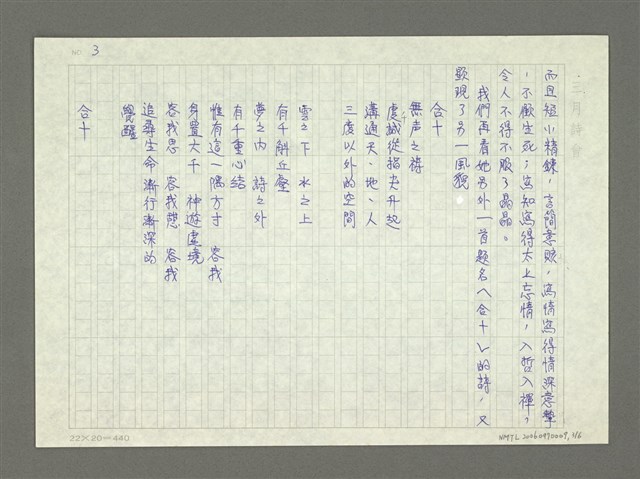 NO. 3
而且短小精鍊,言簡意賅,寫情寫得情深意摯
,不厭生死;寫知寫得太上忘情,入哲入禪,
令人不得不服了晶晶。
我們再看她另外一首題名〈合十〉的詩,又
顯現了另一風貌。
合十
無声之禱
虔誠從指尖升起
溝通天、地、人
三度以外的空間
雲之下 水之上
有千斛丘壑
夢之內 詩之外
有千重心結
惟有這一隅方寸 容我
身置大千 神遊虛境
容我思 容我想 容我
追尋生命漸行漸深的
覺醒
合十
22×20=440